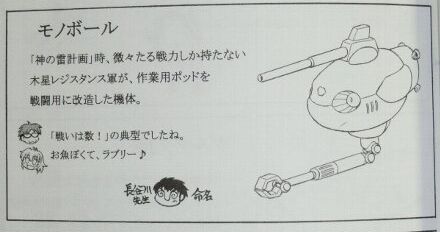 モノボール
「神の雷計画」時、微々たる戦力しか持たない
木星レジスタンス軍が、作業用ポッドを
戦闘用に改造した機体。
「戦いは数!」の典型でしたね。
お魚ぽくて、ラブリー♪
長谷川
先生
命名